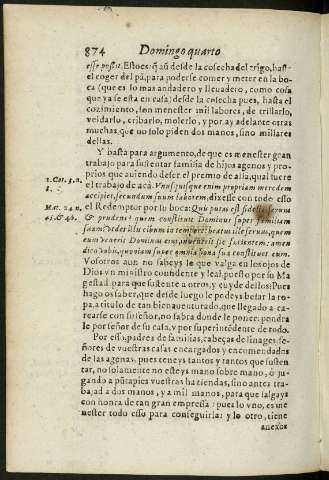 874 Domingo quarto
esse possit. Esto es: q̃ aũ desde la cosecha del trigo, hasta
el coger del pã, para poderse comer y meter en la bo
ca (que es lo mas andadero y lleuadero, como cosa
que ya se esta en casa) desde la cosecha pues, hasta el
cozimiento, son menester mil labores, de trillarlo,
veldarlo, cribarlo, molerlo, y por ay adelante otras
muchas, que no solo piden dos manos, sino millares
dellas.
Y basta para argumento, de que es menester gran
trabajo para sustentar familia de hijos agenos y pro
prios que auiendo desser el premio de alla, qual fuere
1. Cor. 3. n. el trabajo de acà. Vnusquisque enim propriam mercedem
8. accipiet, secundum suum laborem, dixesse con todo esso
Mat. 24. n. el Redemptor por su boca: Quis putas est fidelis seruus
45. & 46. & prudens: quem constituit Dominus super familiam
suam: vt det illis cibum in tempore? beatus ille seruus, quem
cum venerit Dominus eius, inuenerit sic facientem: amen
dico vobis, quoniam super omnia bona sua constituet eum.
Vosotros aun no sabeys lo que valga en los ojos de
Dios vn ministro confidente y leal, puesto por su Ma
gestad para que sustente a otros, y cuyde dellos: Pues
hago os saber, que desde luego le podeys besar la ro-
pa, a titulo de tan bienauenturado, que llegado a ca-
rearse con su señor, no sabra donde le poner: pondra
le por señor de su casa, y por superintẽdente de todo.
Por esso, padres de familias, cabeças de linages, se-
ñores de vuestras casas encargados y encomendados
de las agenas, pues teneys tantos y tantos que susten
tar, no solamente no esteys mano sobre mano, ò ju-
gando a puñtapies vuestras haziendas, sino antes tra-
bajad a dos manos, y a mil manos, para que salgays
con honra de tan gran empressa: pues lo vno, es me
nester todo esso para conseguirla: y lo otro, tiene
anexos